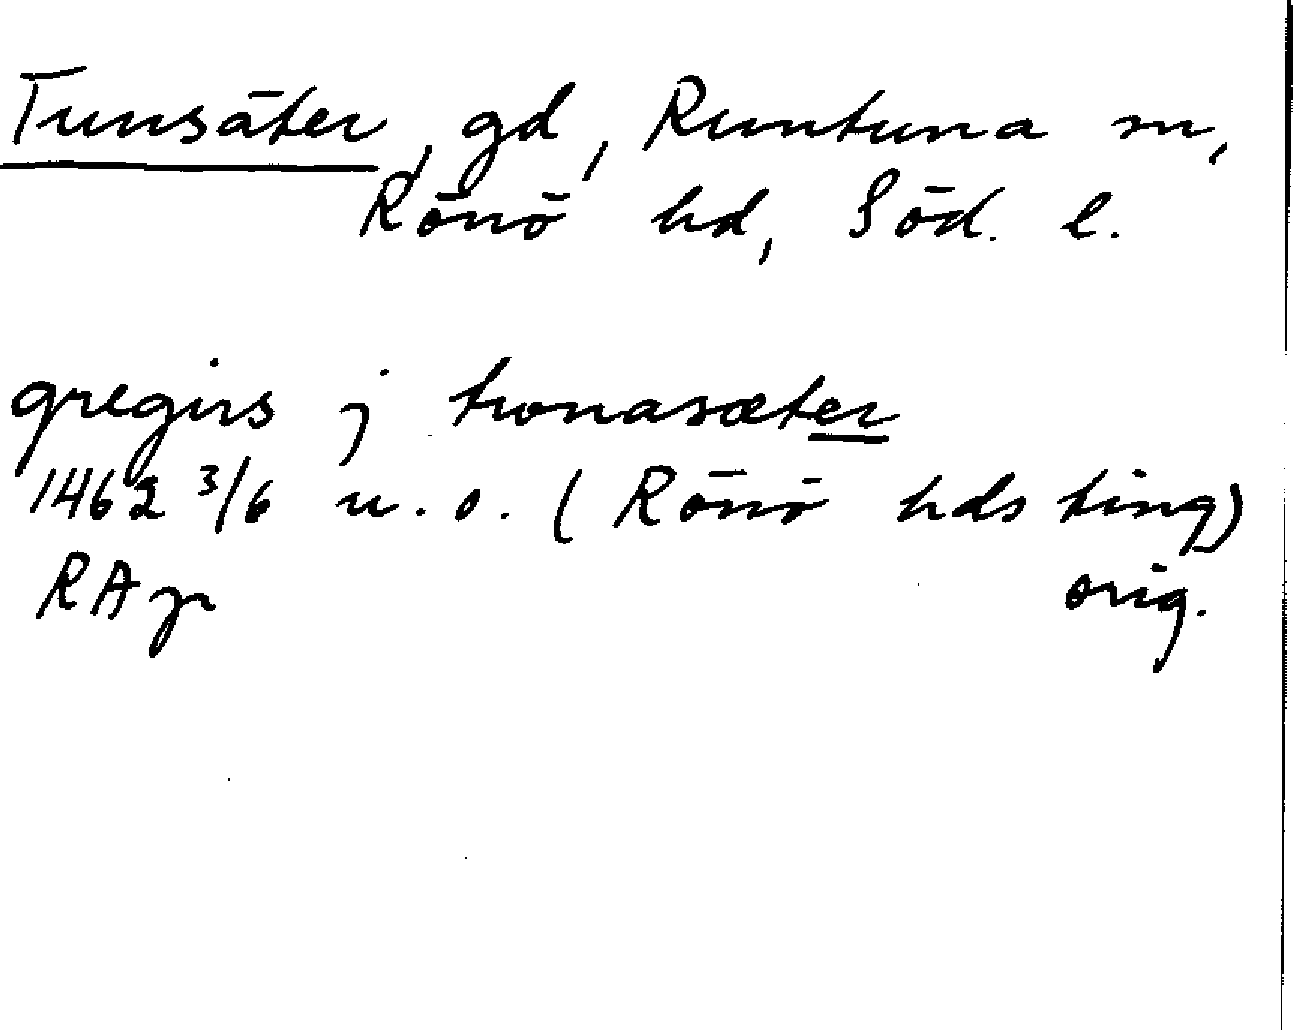 Tunsäter, gd, Runtuna sn,
Rönö hd, Söd. l.
gregirs j twnasæter
1462 3/6 u.o. (Rönö hds ting)
RAp orig.